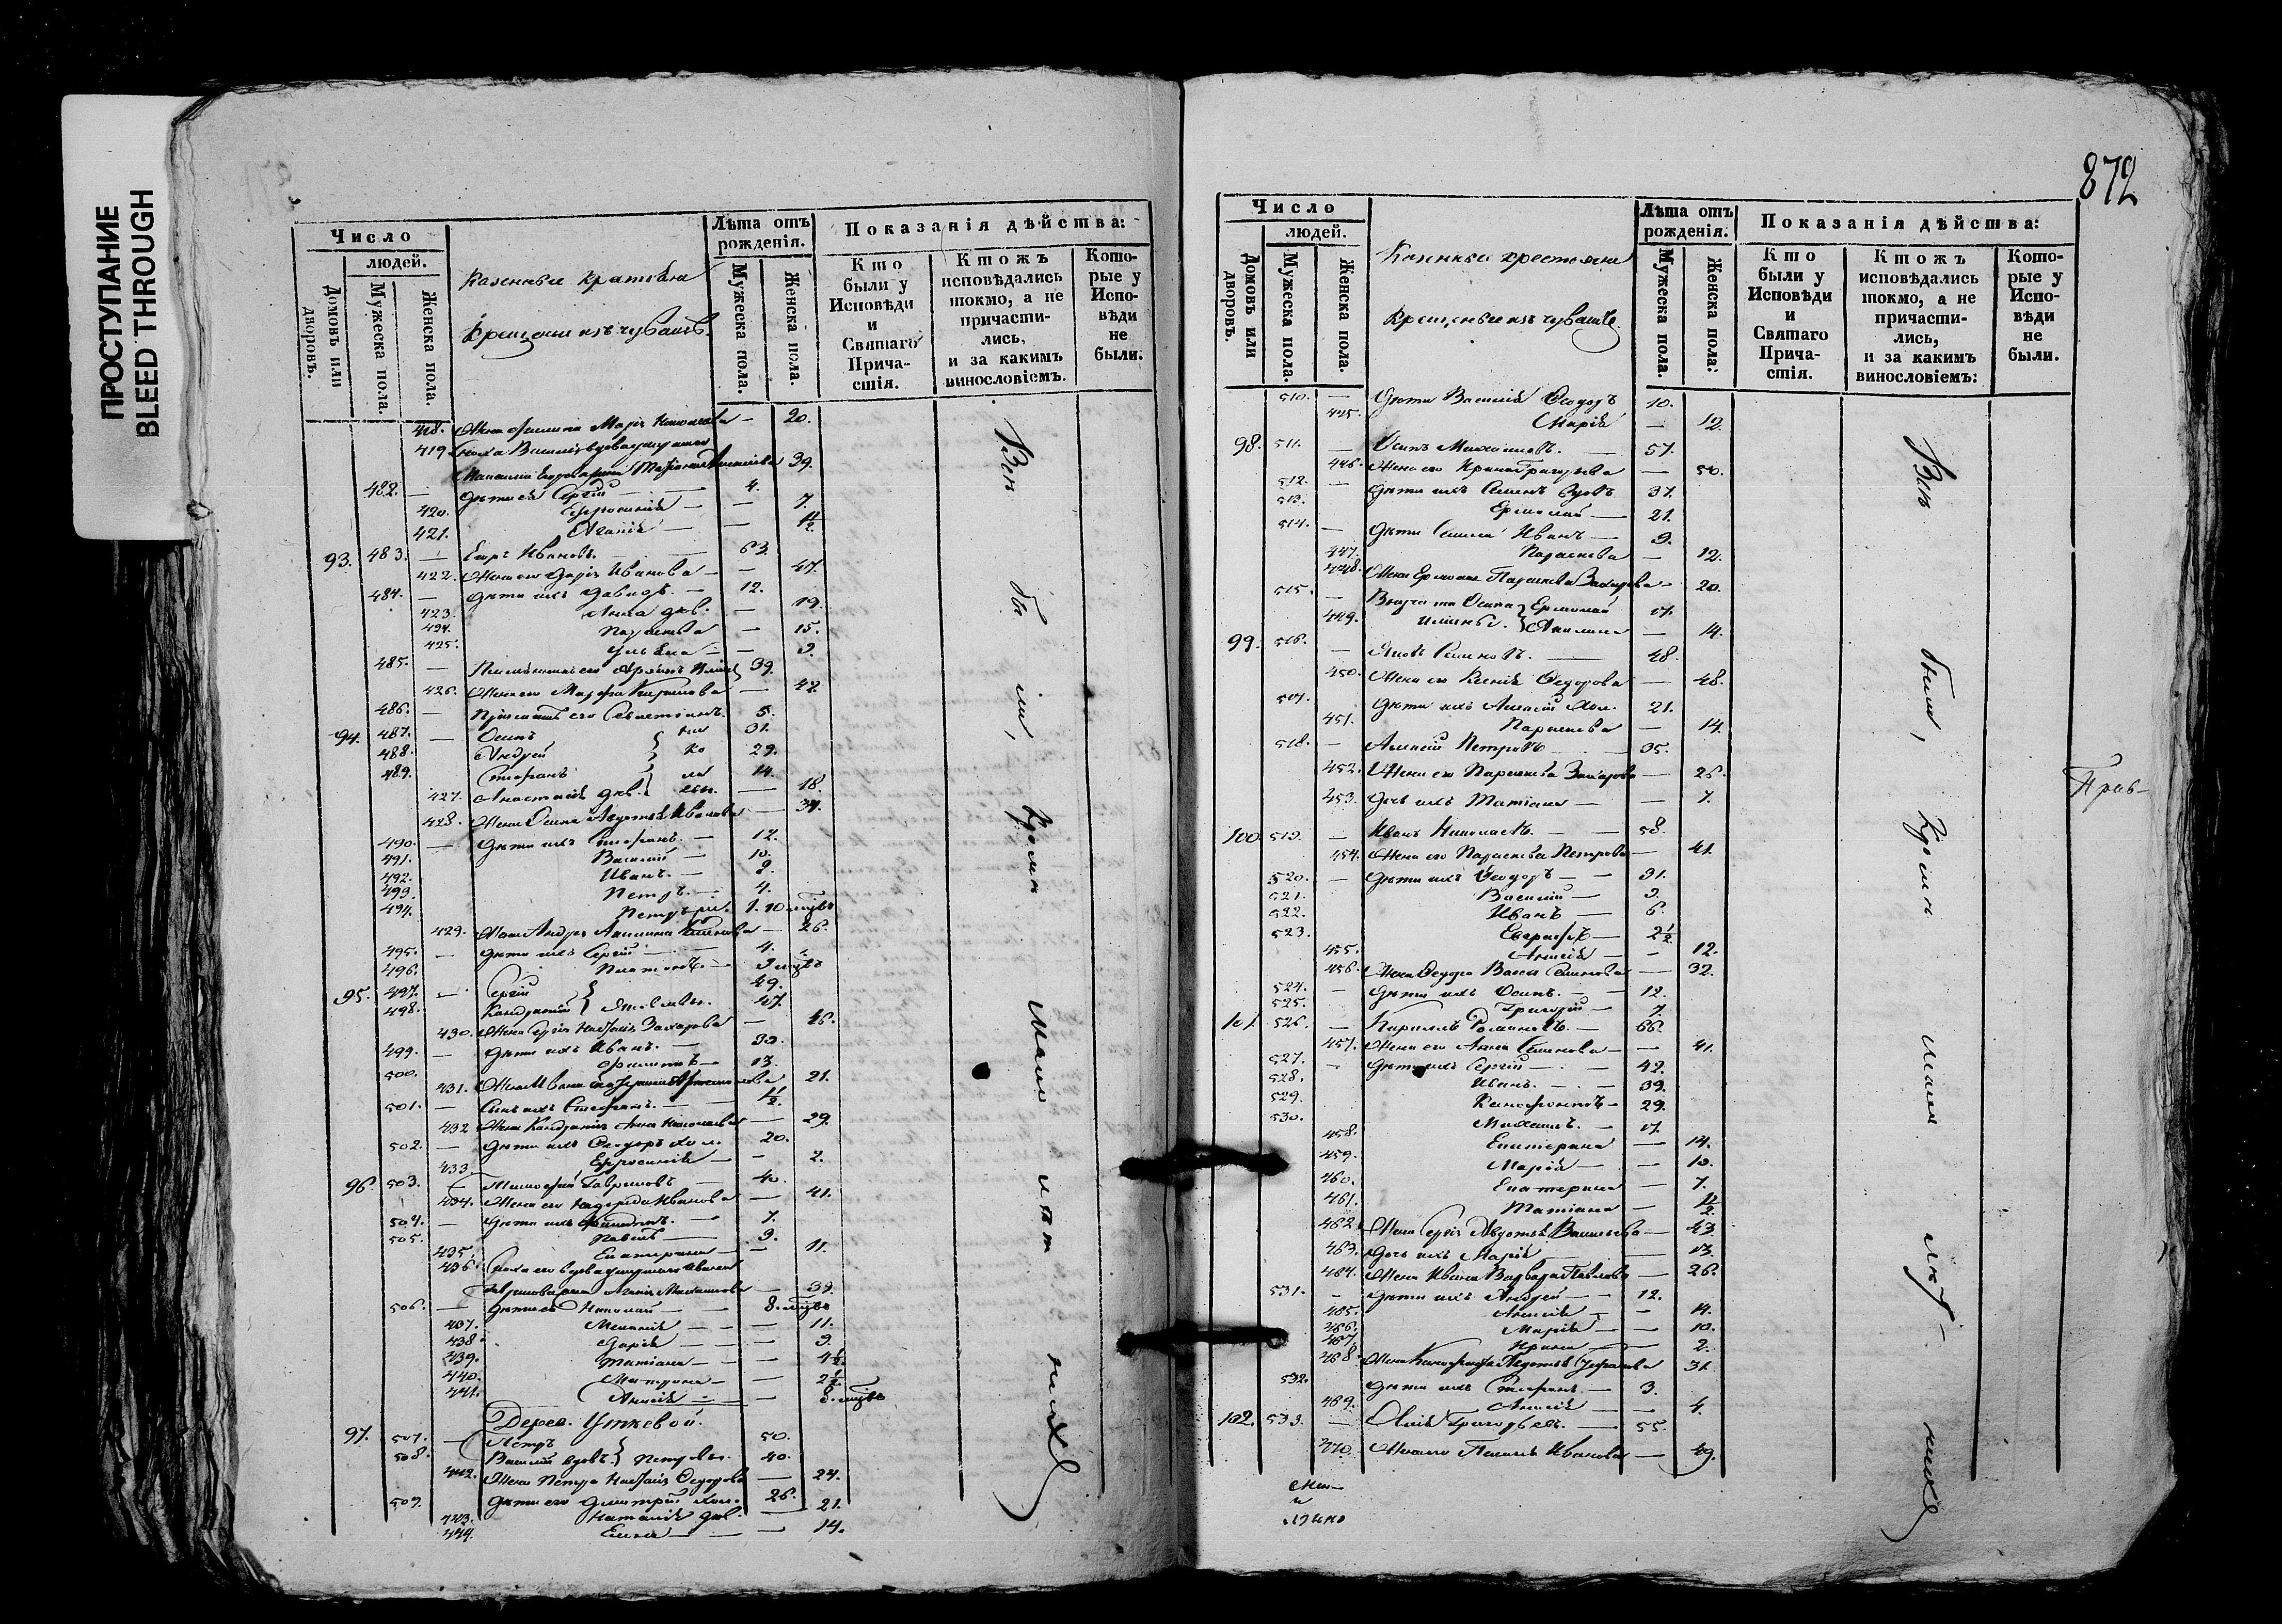 ПРОСТУПАНИЕ
BLEED THROUGH
Число
людей.
Домовъ или дворовъ.
Мужеска пола.
Женска пола.
Крещоныи изъ чувашъ.
Лѣта отъ рожденія.
Мужеска пола.
Женска пола.
Показанія дѣйства:
Кто были у Исповѣди и Святаго Причастія.
Ктожъ исповѣдались токмо, а не причастились, и за какимъ винословіемъ.
Которые у Исповѣди не были.
418. Жена Филипа Марія Николаева — 20.
419
39.
482. — дѣти ея Сергій — 4.
420. Ефросинія — — 7.
421. Агапія — —
93. 483. — Егоръ Ивановъ. — 63.
422. Жена его Дарія Иванова — — 47.
484. — дѣти ихъ Давидъ. — 12.
423. Анна дѣв. — 19.
424. Параскева — 15.
425. Ульяна — — 9.
485. — 39.
426. Жена его Марфа Кирилова — 42.
486. — 5.
94. 487. — Осипъ 31.
488. Андрей 29.
489. Стефанъ 14.
427. Анастасія дѣв. — 18.
428. Жена Осипа Авдотья Иванова — 34.
490. — дѣти ихъ Стефанъ. — 12.
491. Василій — 10.
492. Иванъ. — 9.
493. Петръ. — 4.
494. Петръ 1. 10 мцвъ
429. 26.
495. — дѣти ихъ Сергій — 4.
496. Платонъ. — 9 мцвъ
95. 497. — Сергій 49.
498. Кандратій Яковлевы. 47.
430. Жена Сергія Наталія Захарова — 46.
499. — дѣти ихъ Иванъ. — 30.
500. Филиппъ — 13.
431. 21.
501. — Сынъ ихъ Стефанъ. —
432 Жена Кандратія Анна Николаева — 29.
502. — дѣти ихъ Ѳеодоръ хол. 20.
433. Ефросинія — — 2.
96. 503. Тимофей Гавриловъ — 40.
434. Жена его Надежда Иванова — 41.
504. — 7.
505. Павелъ — 9.
435. Екатерина — — 11.
436.
39.
506. — дѣти ея Николай — — 8. мцвъ
437. Меланія — — — 11.
438. Дарія — — 9.
439. Татіана — — 4½
440. Матрона — — 2½
441. Анисія — — 8. мцвъ
Дерев. Уткевой.
97. 507. — Петръ 50.
508. Василій вдовъ. Петровы. 40.
442. Жена Петра Наталія Ѳедорова — 24.
509. дѣти его Дмитрій хол. 26.
443. Наталія дѣв. — 21.
444. Елена — — 14.
Всѣ были, кромѣ малолѣтнихъ
872
Число
людей.
Домовъ или дворовъ.
Мужеска пола.
Женска пола.
Крещеные изъ чувашъ.
Лѣта отъ рожденія.
Мужеска пола.
Женска пола:
Показанія дѣйства:
Кто были у Исповѣди и Святаго Причастія.
Ктожъ исповѣдались токмо, а не причастились, и за какимъ винословіемъ:
Которые у Исповѣди не были.
510. — Дѣти Василія Ѳеодоръ 10.
445. Марія — 12.
98. 511. — Осипъ Михайловъ. — 57.
446. Жена его Ирина Григорьева — 50.
512. — дѣти ихъ Семенъ вдовъ 37.
513. Ермолай — 21.
514. — дѣти Семена Иванъ — 9.
447. Параскева — 12.
448. Жена Ермолая Параскева Захарова — 20.
515. — Внучата Осипа Ермолай 17.
449. Акилина — 14.
99. 516. — Яковъ Семеновъ. — 48.
450. Жена его Ксенія Ѳедорова — 48.
517. дѣти ихъ Алексій хол. 21.
451. Параскева — 14.
518. — Алексій Петровъ — 35.
452. Жена его Параскева Захарова — 26.
453. Дочь ихъ Татіана — — 7.
100 519. — Иванъ Николаевъ. — 58.
454. Жена его Параскева Петрова — 41.
520. — дѣти ихъ Ѳеодоръ — — 31.
521. Василій — 9.
522. Иванъ — 6.
523. Евграфъ — 2½
455. Анисія — — 12.
456. Жена Ѳедора Васса Семенова — 32.
524. — дѣти ихъ Осипъ. — — 12.
525. Григорій — 7.
101 526. — Кирилъ Романовъ. — 66.
457. Жена его Анна Семенова — — 41.
527. — дѣти ихъ Сергій — — 42.
528. Иванъ. — 39.
529. Ксенофонтъ — 29.
530. Михаилъ. — 17.
458. Екатерина — 14.
459. Марія — — 10.
460. Екатерина — 7.
461. Татіана —
462. Жена Сергія Авдотья Васильева — 43.
463. Дочь ихъ Марія — 13.
464. Жена Ивана Варвара Павлова — 26.
531. — дѣти ихъ Андрей — — 12.
465. Анисія — — 14.
466. Марія — — 10.
467. Ирина — — 2.
468. 31.
532. дѣти ихъ Стефанъ. — 3.
469. Анисія — — 4.
102. 533. — Григорьевъ. — 55.
470. Иванова — 49.
Всѣ были, кромѣ малолѣтнихъ
Прав-